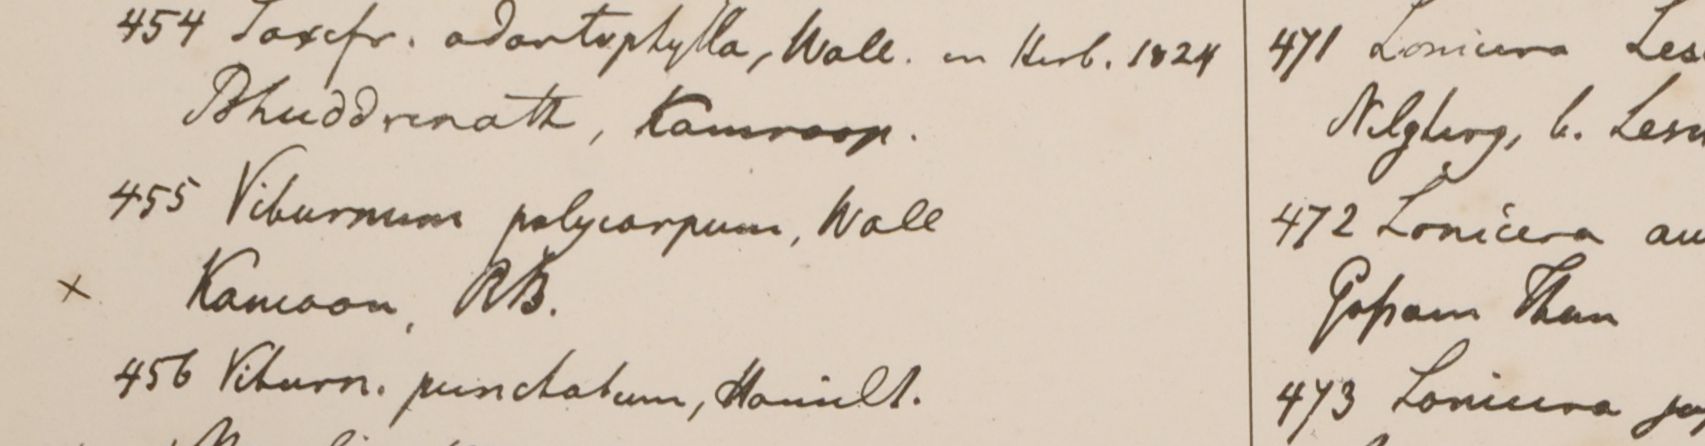 454 Saxifr. odontophylla, Wall. in Herb. 1824
Bhuddrinath, Kamroop.
455 Viburnum polycarpum, Wall
× Kamaon, RB.
456 Viburn. punctatum, Hamilt.
471 Lonicera Les
Nilgherry, b. Lesc
472 Lonicera au
Gossam Than
473 Lonicera